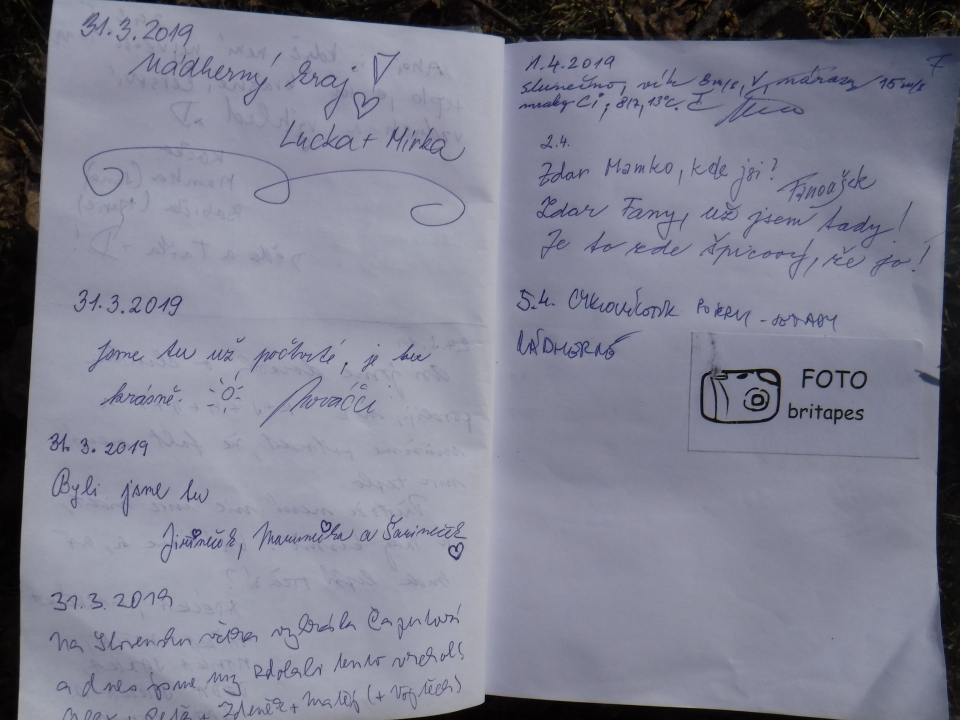 31.3.2019
Nádherný kraj!
Lucka + Mirka
31.3.2019
Jsme tu už počtvrté, je tu
krásně. Nováčci
31.3.2019
Byli jsme tu
Jiříneček, Maruneška a Šarineček
31.3.2019
na Slovensku včera vyhrála Čaputová
a dnes jsme my zdolali tento vrchol
+ Zdeněk + Matěj (+ Vojtěch)
1.4.2019
slunečno, vítr 8m/s, V, nárazy 15m/s
mraky Ci, 8/7, 13°C.
2.4.
Zdar Mamko, kde jsi? Fanoušek
Zdar Fany, už jsem tady!
Je to zde špicový, že jo!
5.4. Cykovýletník
NÁDHERNĚ
FOTO
britapes